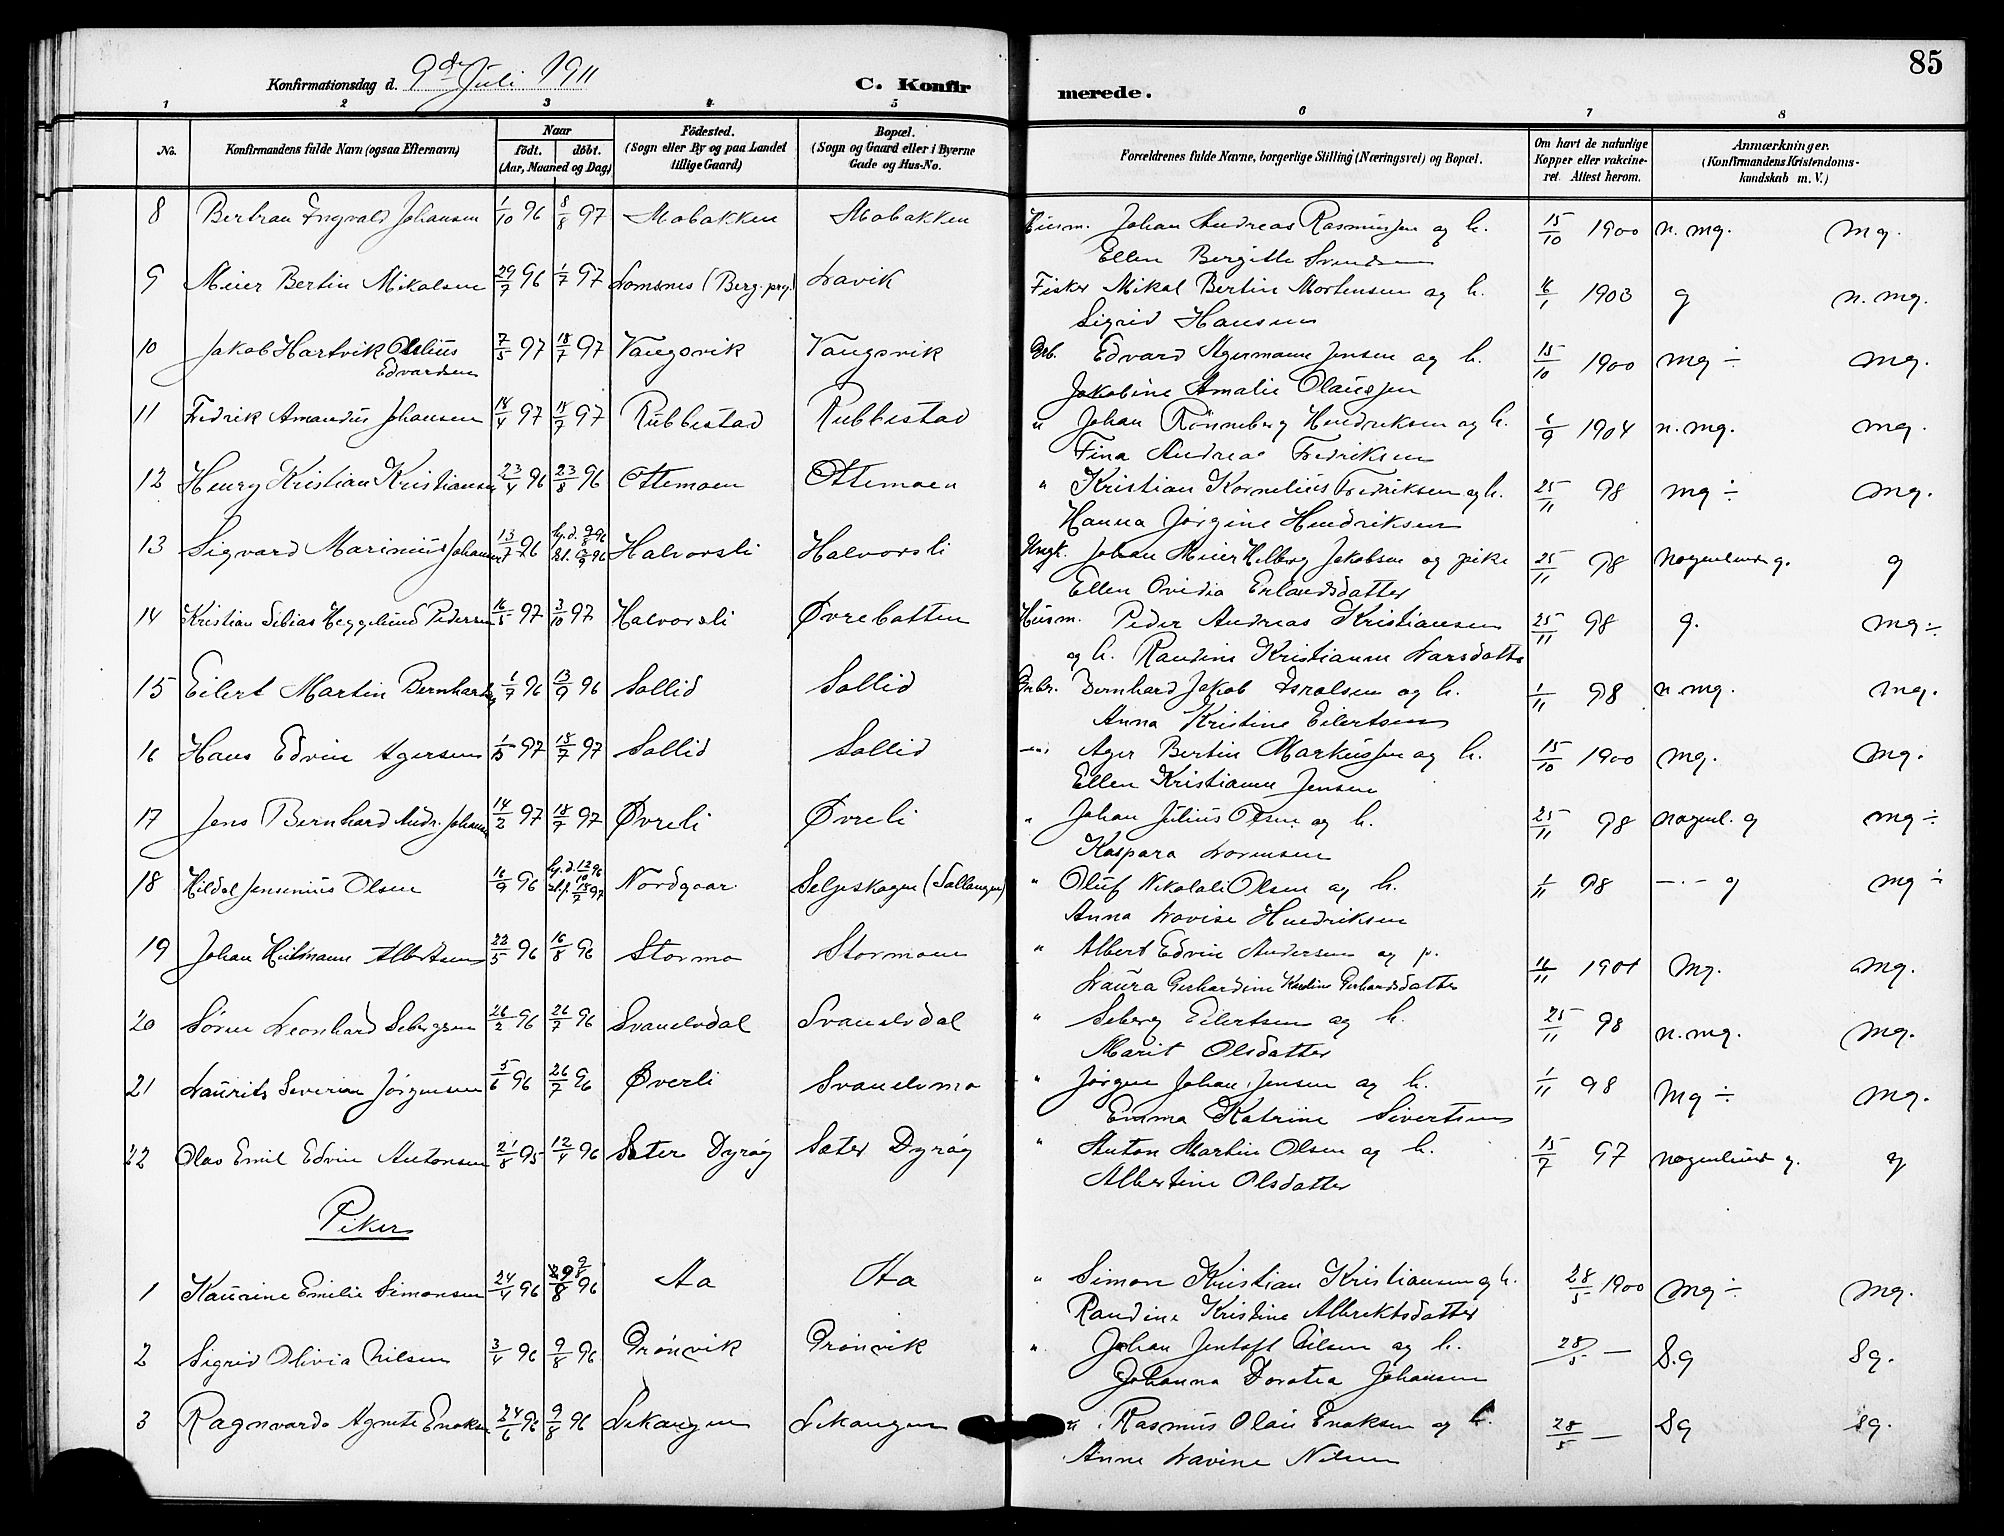 85
Konfirmationsdag d. 9de Juli 1911
C. Konfirmerede.
1 2 3 4 5 6 7 8
No. Konfirmandens fulde Navn (ogsaa Efternavn) Naar født. døbt. (Aar, Maaned og Dag) Födested. (Sogn eller By og paa Landet tillige Gaard) Bopæl. (Sogn og Gaard eller i Byerne Gade og Hus-No. Forældrenes fulde Navne, borgerlige Stilling (Næringsvei) og Bopæl. Om havt de naturlige Kopper eller vakcineret. Attest herom. Anmærkninger. (Konfirmandens Kristendomskundskab m. V.)
8 Bertran Ingvald Johansen 1/10 96 8/8 97 Mobakken Mobakken Husm. Johan Andreas Rasmussen og h. 15/10 1900 n. mg. mg.
Ellen Bergitte Svendsen
9 Meier Bertin Mikalsen 29/7 96 1/7 97 Lomsnes (Berg. prg.) Lavik Fisker Mikal Bertin Mortensen og h. 16/1 1903 g n. mg.
Sigrid Hansen
10 Jakob Hartvik Edvardsen 7/5 97 18/7 97 Vangsvik Vangsvik Gb. Edvard Agermann Jensen og h. 15/10 1900 mg ÷ mg.
Jakobine Amalie Olaussen
11 Fredrik Amandus Johansen 14/4 97 18/7 97 Rubbestad Rubbestad " Johan Rønneberg Hendriksen og h. 6/9 1904 n. mg. mg.
Fina Andrea Fredriksen
12 Henry Kristian Kristiansen 23/4 96 23/8 96 Ottemoen Ottemoen " Kristian Kornelius Fredriksen og h. 25/11 98 mg ÷ mg.
Hanna Jørgine Hendriksen
13 Sigvard Marinius Johansen 13/7 96 hj. d. 9/8 96 Halvorsli Halvorsli Ungk. Johan Meier Helberg Jakobsen og pike 25/11 98 nogenlunde g. g
Ellen Ovidia Erlandsdatter
14 Kristian Heggelund Pedersen 16/5 97 3/10 97 Halvorsli Øvrebotten Husm. Peder Andreas Kristiansen 25/11 98 g. mg ÷
og h. Randine Kristianne Larsdatter
15 Eilert Martin Bernhardsen 1/7 96 13/9 96 Sollid Sollid Gbr. Bernhard Jakob Isralsen og h. 1/11 98 n. mg. mg.
Anna Kristine Eilertsen
16 Hans Edvin Agersen 97 18/7 97 Sollid Sollid Ager Bertin Markussen og h. 15/10 1900 mg. mg.
Ellen Kristianne Jensen
17 Jens Bernhard Andr. Johansen 14/2 97 18/7 97 Øvreli Øvreli " Johan Julius Olsen og h. 25/11 98 nogenl. g mg ÷
Kaspara Lorensen
18 Hildal Jensenius Olsen 16/9 96 hj. d. 12/10 96 st. f. 18/7 97 Nordgaar Seljeskogen (Sallangen) " Oluf Nikolai Olsen og h. 1/11 98 —.— g mg ÷
Anna Lovise Hendriksen
19 Johan Hilmann Albertsen 22/5 96 16/8 96 Stormo Stormoen " Albert Edvin Andersen og p. 11/11 1901 mg. mg.
Laura Gerhardine Gerhardsdatter
20 Søren Leonhard Sebergsen 26/2 96 26/7 96 Svanelvdal Svanelvdal " Seberg Eilertsen og h. 25/11 98 n. mg. mg.
Marit Olsdatter
21 Laurits Severian Jørgensen 5/6 96 26/7 96 Øverli Svanelvmo " Jørgen Johan Jensen og h. 1/11 98 mg ÷ mg.
Emma Katrine Sivertsen
22 Olav Emil Edvin Antonsen 21/8 95 12/4 96 Sæter Dyrøy Sæter Dyrøy " Anton Martin Olsen og h. 15/7 97 nogenlunde g. g
Albertine Olsdatter
Piker
1 Kaurine Emilie Simonsen 24/4 96 9/8 96 Aa Aa " Simon Kristian Kristiansen og h. 28/5 1900 mg ÷ mg.
Randine Kristine Albriktsdatter
2 Sigrid Olivia Nilsen 3/4 96 9/8 96 Prønvik Prønvik " Johan Jentoft Nilsen og h. 28/5 — S.g Sg.
Johanna Dorotea Johansen
3 Ragnvarda Agnete Enoksen 24/6 96 9/8 96 Lekangen Lekangen " Rasmus Olai Enoksen og h. 28/5 — Sg Sg.
Anne Lavine Nilsen